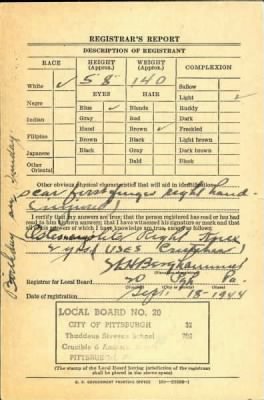 REGISTRAR'S REPORT
DESCRIPTION OF REGISTRANT
RACE HEIGHT (Approx.) WEIGHT (Approx.) COMPLEXION
White ✓ 5 8 140 Sallow
EYES HAIR Light ✓
Negro Blue ✓ Blonde Ruddy
Indian Gray Red Dark
Hazel Brown ✓ Freckled
Filipino Brown Black Light brown
Japanese Black Gray Dark brown
Other Oriental Bald Black
Other obvious physical characteristic that will aid in identification
first finger right hand
injured
I certify that my answers are true; that the person registered has read or has had
read to him his own answers; that I have witnessed his signature or mark and that
all of his answers of which I have knowledge are true, except as follows:
Right Knee
Uses Crutches
Registrar for Local Board 20 Pgh Pa.
Date of registration Sept. 18-1944
LOCAL BOARD NO. 20
CITY OF PITTSBURGH
Thaddeus Stevens School
Crucible &
PITTSBURGH
(The stamp of the Local Board having jurisdiction of the registrant
shall be placed in the above space)
U. S. GOVERNMENT PRINTING OFFICE
Birthday on Sunday